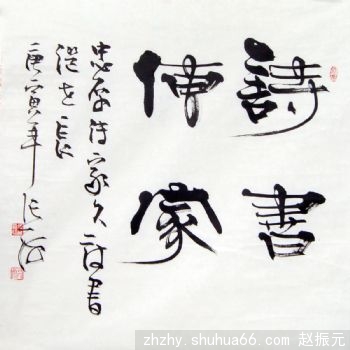 詩書
傳家
忠厚传家久诗书
继世长
庚寅年
zhzhy.shuhua66.com 赵振元